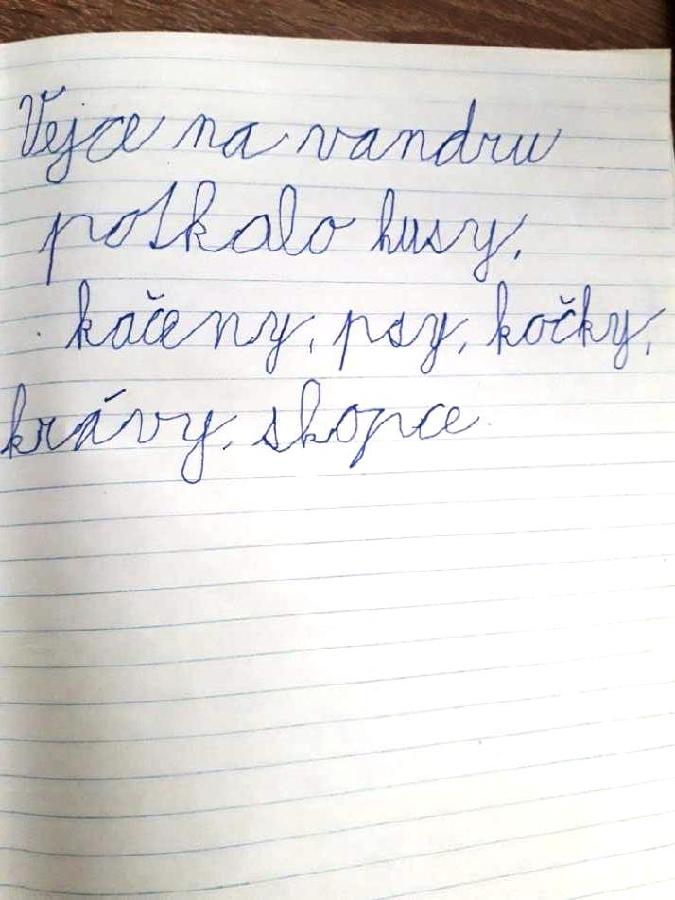 Vejce na vandru
potkalo husy,
kačeny, psy, kočky,
krávy, skopce